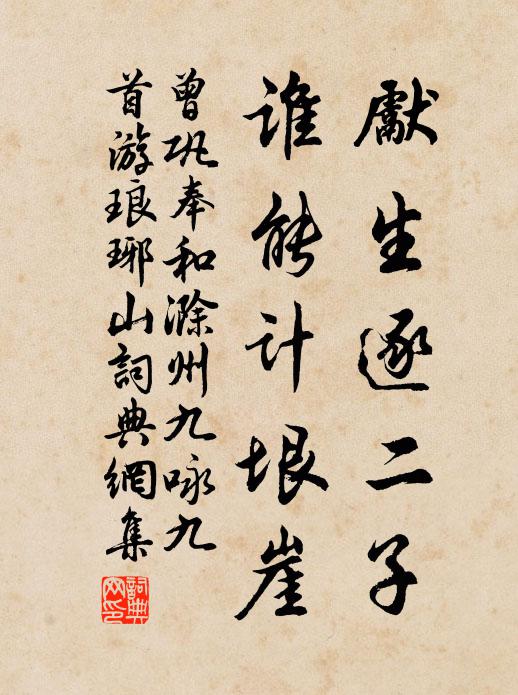 獻生逐二子
誰能計垠崖
曾巩奉和滁州九咏九
首游琅琊山詞典網集
詞典
网印